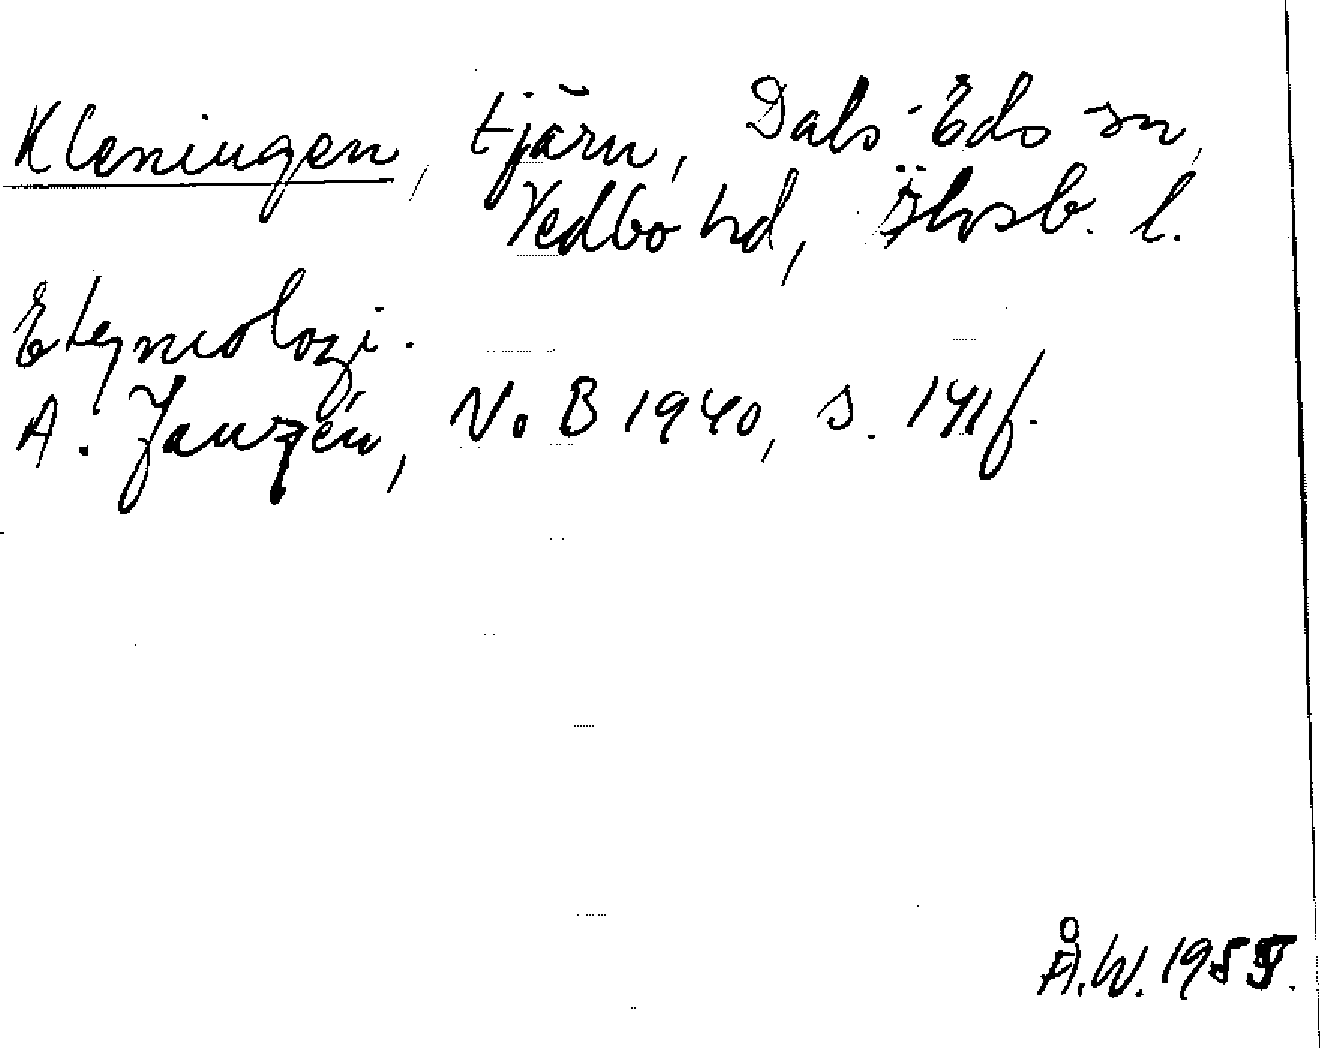 Kleningen, tjärn, Dals-Eds sn,
Vedbo hd, Älvsb. l.
Etymologi.
A. Janzén, NoB 1940, s. 141f.
Å.W. 1955.